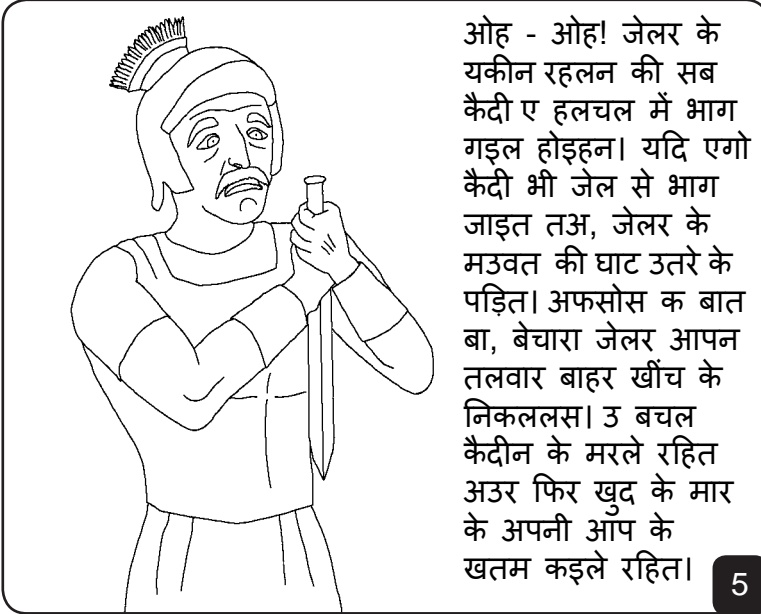 ओह - ओह! जेलर के
यकीन रहलन की सब
कैदी ए हलचल में भाग
गइल होइहन। यदि एगो
कैदी भी जेल से भाग
जाइत तअ, जेलर के
मउवत की घाट उतरे के
पड़ित। अफसोस क बात
बा, बेचारा जेलर आपन
तलवार बाहर खींच के
निकललस। उ बचल
कैदीन के मरले रहित
अउर फिर खुद के मार
के अपनी आप के
खतम कइले रहित।
5